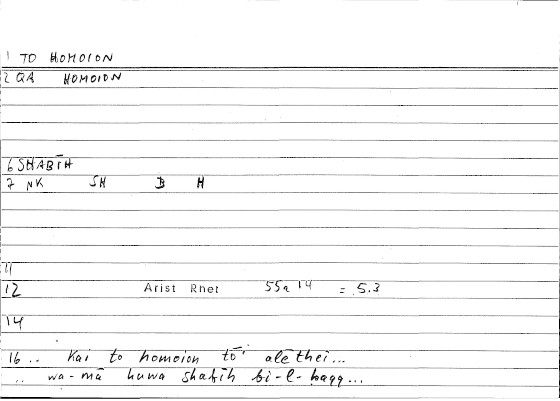 1 TO HOMOION
2 QA HOMOION
6 SHABĪH
7 NK SH B H
11
12 Arist Rhet 55a14 = 5.3
14
16 .. Kai to homoion tō' alēthei...
.. wa-mā huwa shabīh bi-l-ḥaqq...